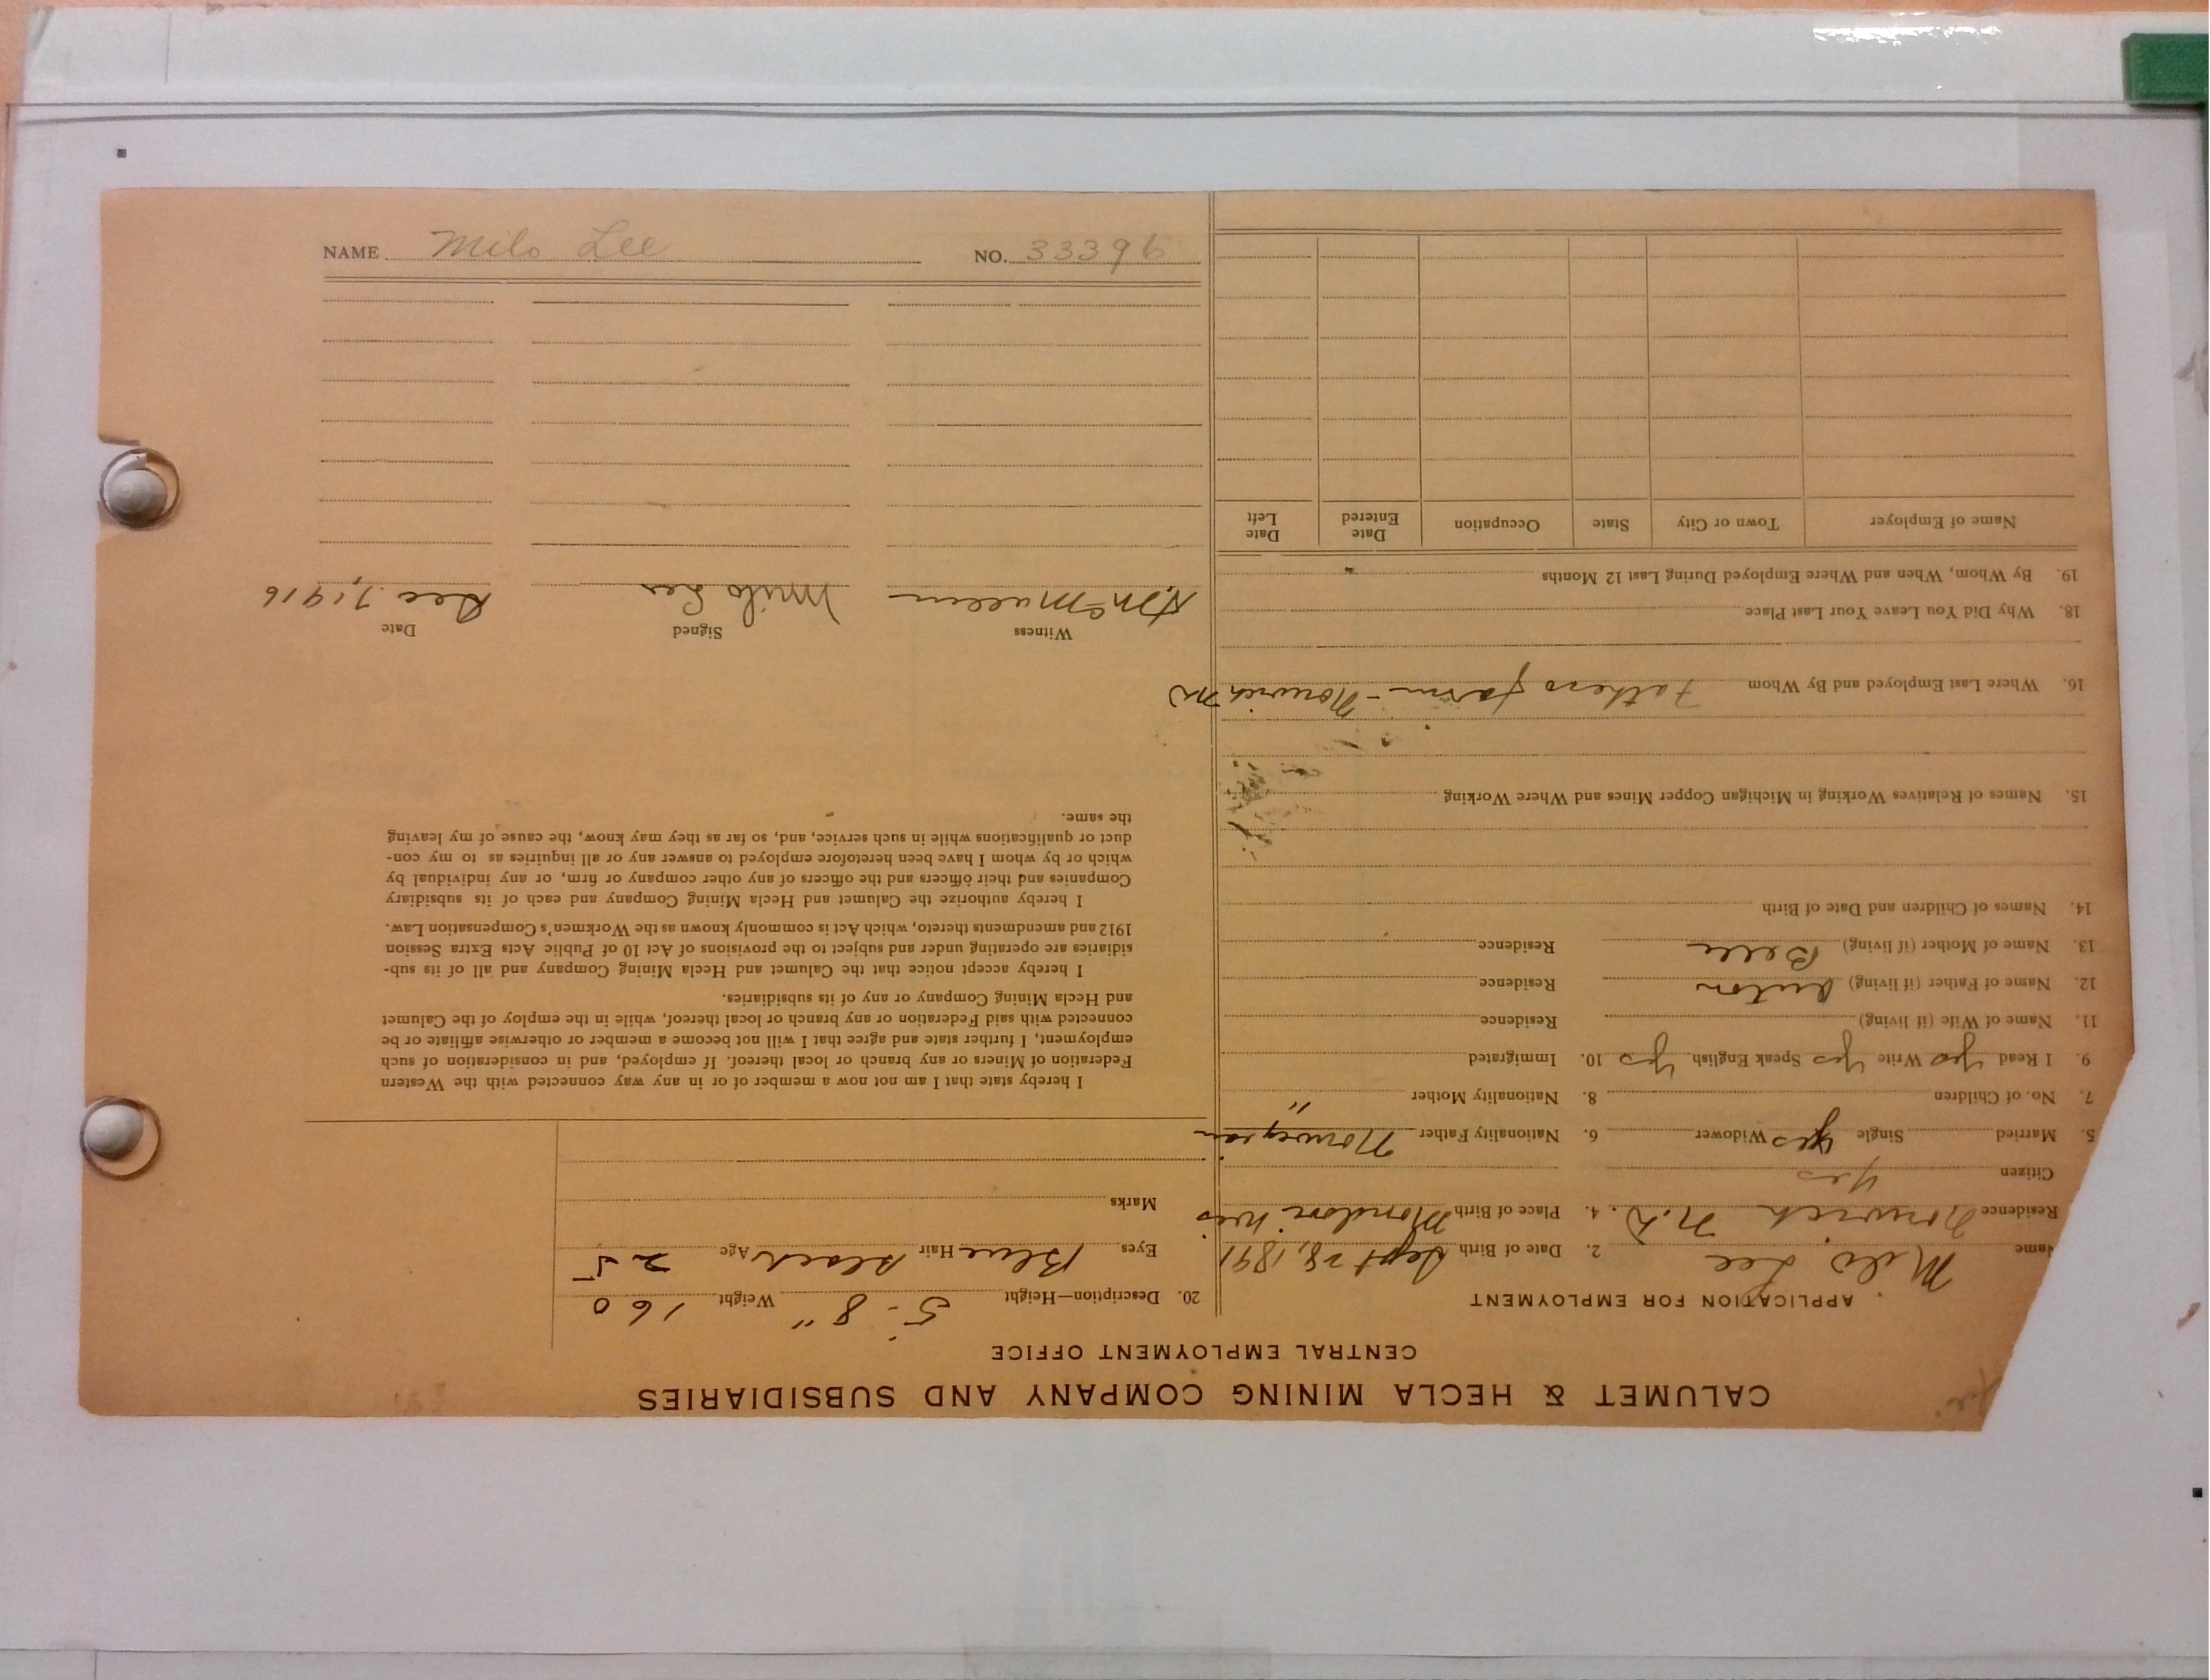 CALUMET & HECLA MINING COMPANY AND SUBSIDIARIES
CENTRAL EMPLOYMENT OFFICE
APPLICATION FOR EMPLOYMENT
Name Milo Lee 2. Date of Birth Sept 28, 1891
Residence Norwich N.D. 4. Place of Birth Mondovi Wis
Citizen Yes
5. Married Single Yes Widower 6. Nationality Father Norwegian
7. No. of Children 8. Nationality Mother "
9. I Read Yes Write Yes Speak English Yes 10. Immigrated
11. Name of Wife (if living) Residence
12. Name of Father (if living) Anton Residence
13. Name of Mother (if living) Belle Residence
14. Names of Children and Date of Birth
15. Names of Relatives Working in Michigan Copper Mines and Where Working
16. Where Last Employed and By Whom Fathers farm - Norwich ND
18. Why Did You Leave Your Last Place
19. By Whom, When and Where Employed During Last 12 Months
Name of Employer Town or City State Occupation Date Entered Date Left
20. Description—Height 5'-8" Weight 160
Eyes Blue Hair Black Age 25
Marks
I hereby state that I am not now a member of or in any way connected with the Western
Federation of Miners or any branch or local thereof. If employed, and in consideration of such
employment, I further state and agree that I will not become a member or otherwise affiliate or be
connected with said Federation or any branch or local thereof, while in the employ of the Calumet
and Hecla Mining Company or any of its subsidiaries.
I hereby accept notice that the Calumet and Hecla Mining Company and all of its sub-
sidiaries are operating under and subject to the provisions of Act 10 of Public Acts Extra Session
1912 and amendments thereto, which Act is commonly known as the Workmen's Compensation Law.
I hereby authorize the Calumet and Hecla Mining Company and each of its subsidiary
Companies and their officers and the officers of any other company or firm, or any individual by
which or by whom I have been heretofore employed to answer any or all inquiries as to my con-
duct or qualifications while in such service, and, so far as they may know, the cause of my leaving
the same.
Witness Signed Date
Milo Lee Dec. 7, 1916
NAME Milo Lee NO. 33396